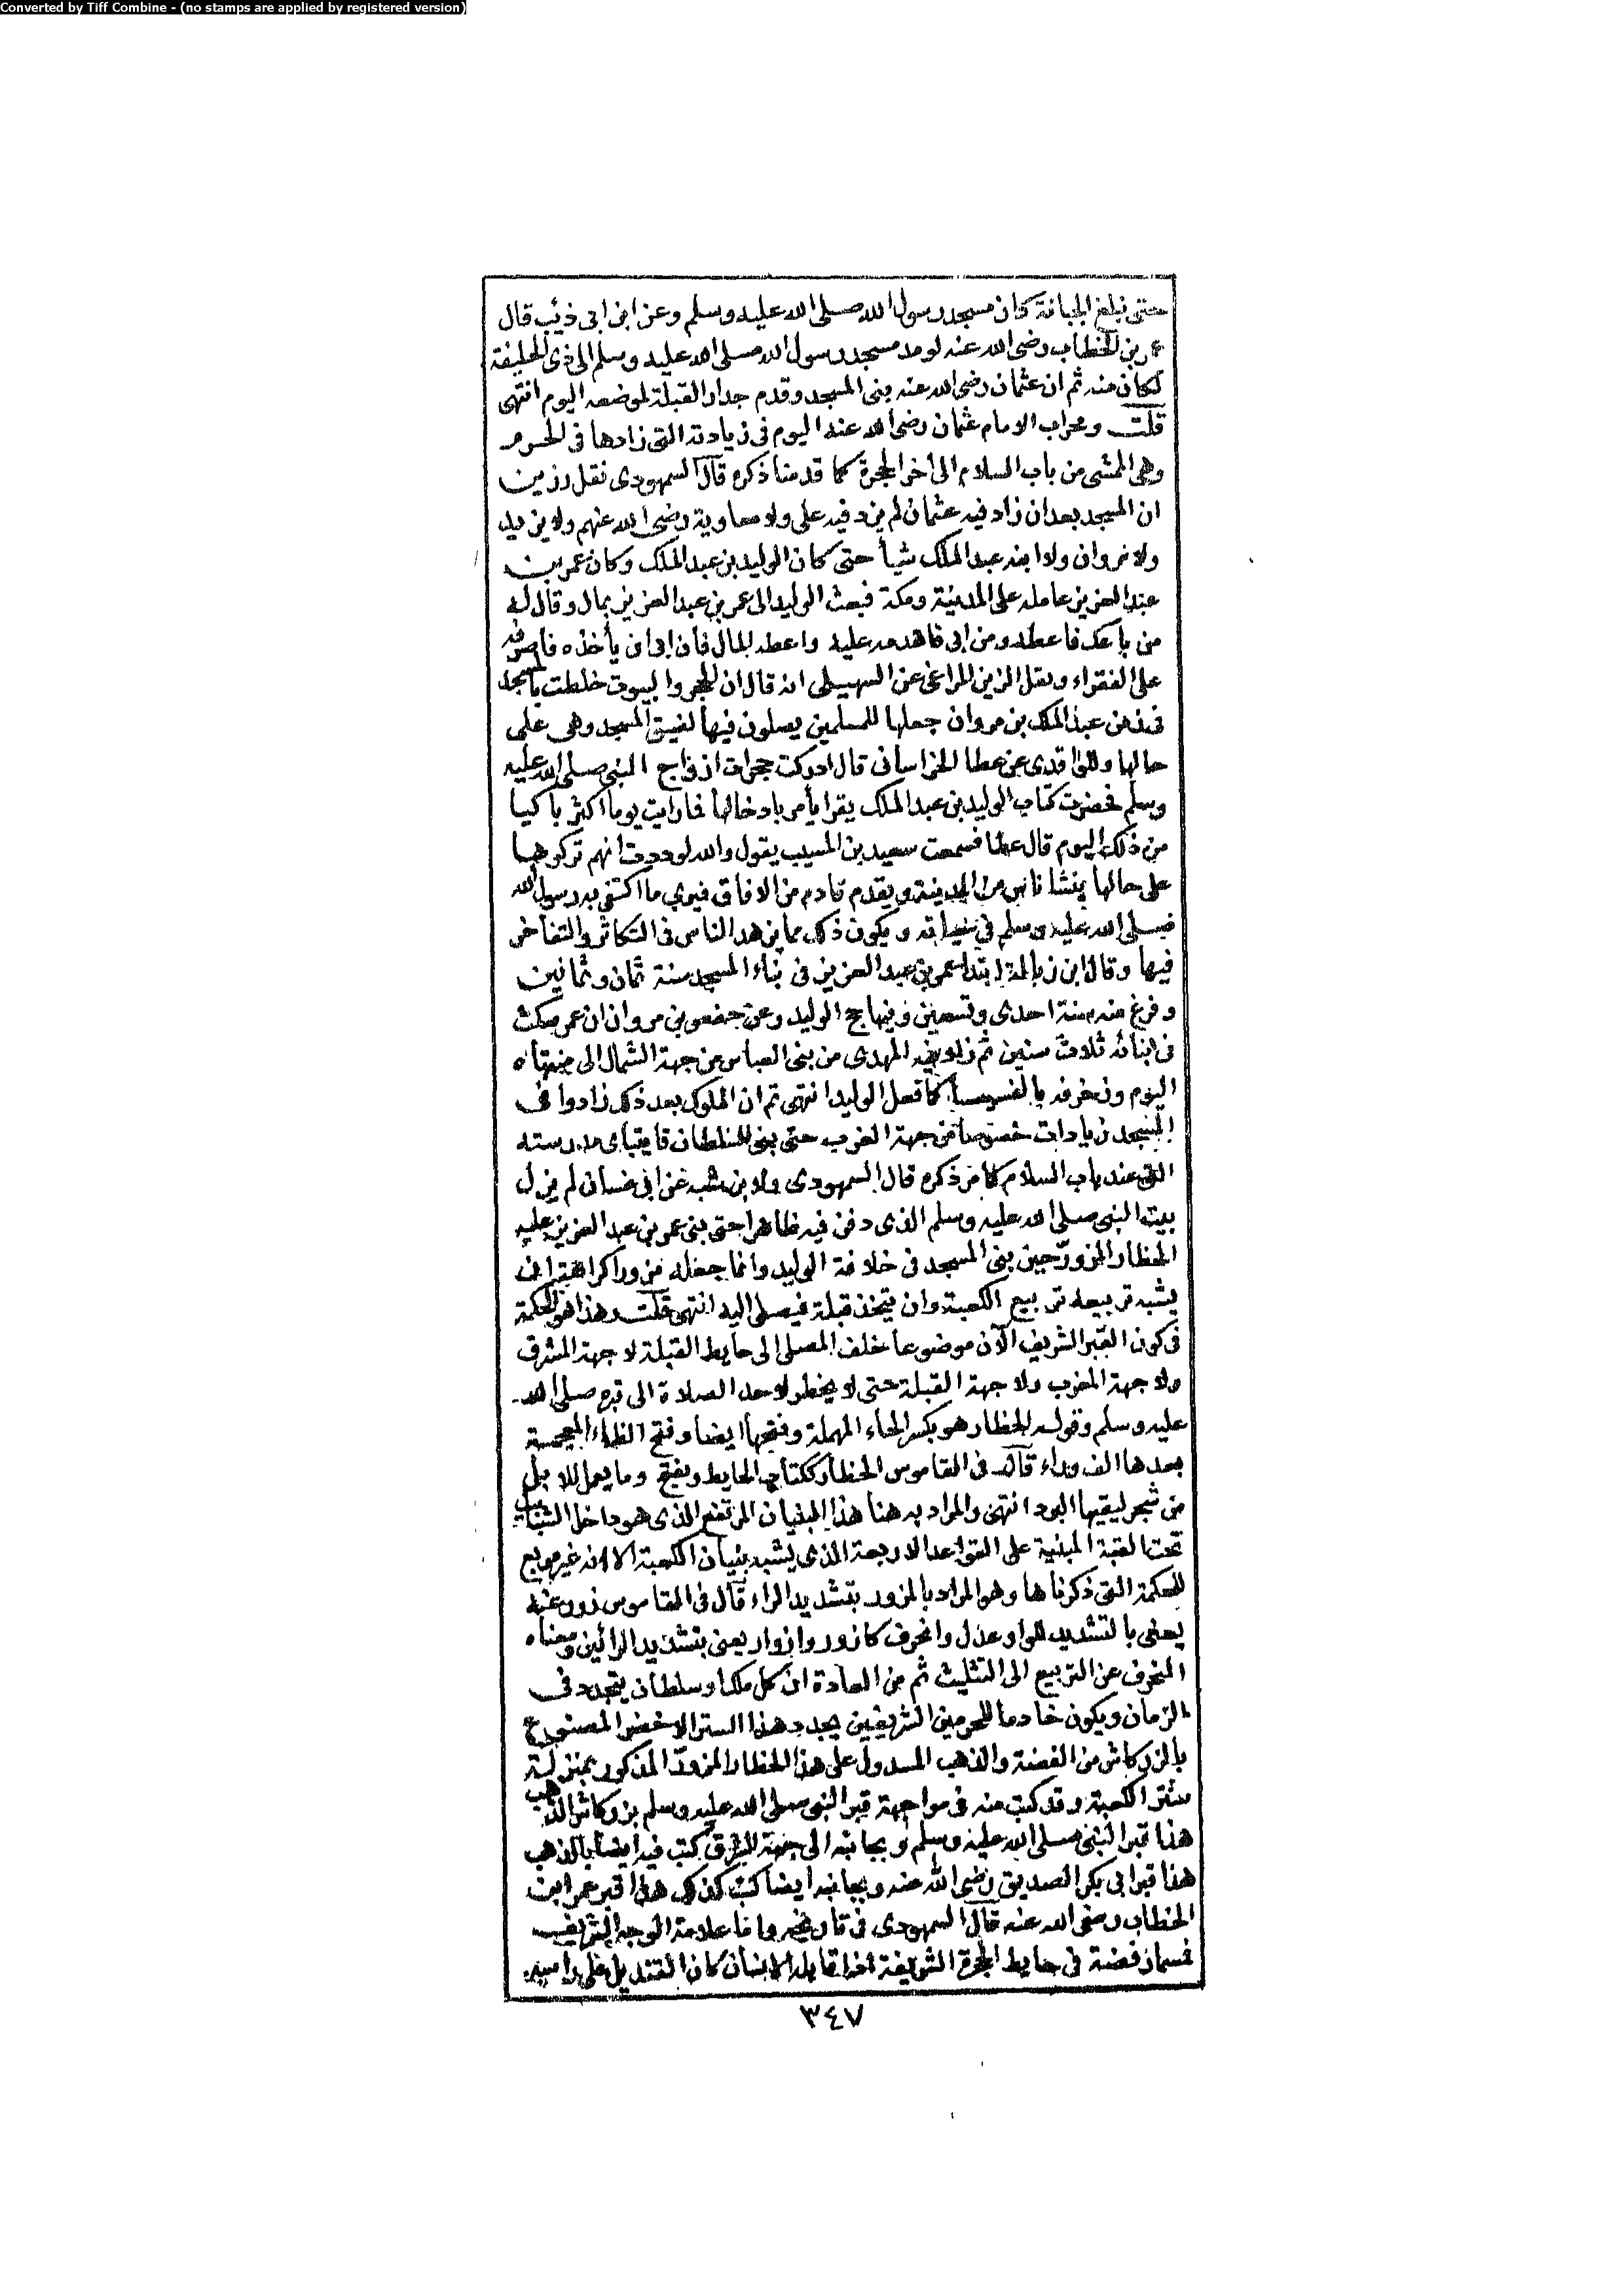 Converted by Tiff Combine - (no stamps are applied by registered version)
حتى نبلغ الجبانة كان مسجد رسول الله صلى الله عليه وسلم وعن ابن ابى ذئب قال
عمر بن الخطاب رضى الله عنه لو مد مسجد رسول الله صلى الله عليه وسلم الى ذى الحليفة
لكان منه ثم ان عثمان رضى الله عنه بنى المسجد وقدم جدار القبلة لموضعه اليوم انتهى
قلت ومحراب الامام عثمان رضى الله عنه اليوم فى زيادته التى زادها فى الحرم
وهى الممشى من باب السلام الى أخر الحجرة كما قدمنا ذكره قال السمهودى نقل رزين
ان المسجد بعد ان زاد فيه عثمان لم يزد فيه على ولا معاوية رضى الله عنهم ولا يزيد
ولا مروان ولا ابنه عبد الملك شيأ حتى كان الوليد بن عبد الملك وكان عمر بن
عبد العزيز عامله على المدينة ومكة فبعث الوليد الى عمر بن عبد العزيز بمال وقال له
من باعك فاعطه ومن ابى فاهدمه عليه واعطه المال فأن ابى ان يأخذه فاصرفه
على الفقراء ونقل الزين المراغى عن السهيلى انه قال ان الحجر والبيوت خلطت بالمسجد
فى زمن عبد الملك بن مروان جعلها للمسلمين يصلون فيها لضيق المسجد وهى على
حالها وللواقدى عن عطا الخراسانى قال ادركت حجرات ازواج النبى صلى الله عليه
وسلم فحضرت كتاب الوليد بن عبد الملك يقرا يأمر بادخالها فما رايت يوما اكثر باكيا
من ذلك اليوم قال عطا فسمعت سعيد بن المسيب يقول والله لوددت انهم تركوها
على حالها ينشا ناس من المدينة ويقدم قادم من الافاق فيرى ما اكتفى به رسول الله
صلى الله عليه وسلم فى حياته ويكون ذلك مما يزهد الناس فى التكاثر والتفاخر
فيها وقال ابن زبالة ابتدا عمر بن عبد العزيز فى بناء المسجد سنة ثمان وثمانين
وفرغ منه سنة احدى وتسعين وفيها حج الوليد وعن جعفر بن مروان ان عمر مكث
فى ابنائه ثلاث سنين ثم زاد فيه المهدى من بنى العباس من جهة الشمال الى منتهاه
اليوم وزخرفه بالفسيفسا كما فعل الوليد انتهى ثم ان الملوك بعد ذلك زادوا فى
المسجد زيادات خصوصا من جهة الغرب حتى بنى السلطان قايتباى مدرسته
التى عند باب السلام كما مر ذكره قال السمهودى ولابن شبه عن ابى غسان لم يزل
بيت النبى صلى الله عليه وسلم الذى دفن فيه ظاهرا حتى بنى عمر بن عبد العزيز عليه
الحظار المزور حين بنى المسجد فى خلافة الوليد وانما جعله مزورا كراهة ان
يشبه تربيعه تربيع الكعبة وان يتخذ قبلة فيصلى اليه انتهى قلت وهذا هو الحكمة
فى كون القبر الشريف الآن موضوعا خلف المصلى الى حايط القبلة لا جهة المشرق
ولا جهة المغرب ولا جهة القبلة حتى لا يخطر لاحد الصلاة الى قبره صلى الله
عليه وسلم وقوله الحظار هو بكسر الحاء المهملة وفتحها ايضا وفتح الظاء المعجمة
بعدها الف وراء قال فى القاموس الحظار ككتاب الحايط ويفتح وما يعمل للابل
من شجر ليقيها البرد انتهى والمراد به هنا هذا البنيان المرتفع الذى هو داخل الشبابيك
تحت القبة المبنية على القواعد الاربعة الذى يشبه بنيان الكعبة الا انه غير مربع
للحكمة التى ذكرناها وهو المراد بالمزور بتشديد الراء قال فى القاموس زور عنه
يعنى بالتشديد للواو عدل وانحرف كازور وازوار يعنى بتشديد الرائين ومعناه
المنحرف عن التربيع الى التثليث ثم من العادة ان كل ملك او سلطان يتجدد فى
الزمان ويكون خادما للحرمين الشريفين يجدد هذا الستر الاخضر المصنوع
بالزركاش من الفضة والذهب المسدول على هذا الحظار المزور المذكور بمنزلة
ستر الكعبة وقد كتب منه فى مواجهة قبر النبى صلى الله عليه وسلم بزركاش الذهب
هذا قبر النبى صلى الله عليه وسلم وبجانبه الى جهة الشرق كتب فيه ايضا بالذهب
هذا قبر ابى بكر الصديق رضى الله عنه وبجانبه ايضا كتب كذلك هذا قبر عمر ابن
الخطاب رضى الله عنه قال السمهودى فى تاريخه واما علامة الوجه الشريف
فمسمار فضة فى حايط الحجرة الشريفة اذا قابله الانسان كان القنديل على راسه
٣٤٧